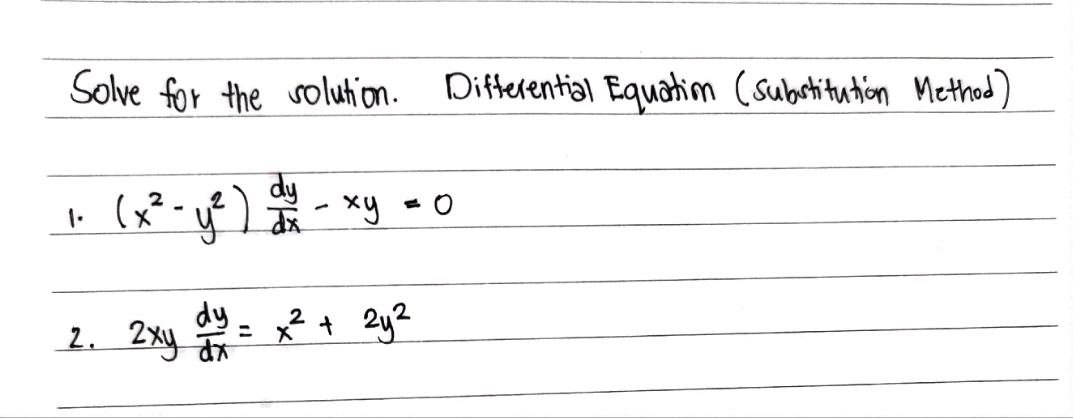 Solve for the solution. Differential Equation (Substitution Method)
1. (x² - y²) dy/dx - xy = 0
2. 2xy dy/dx = x² + 2y²